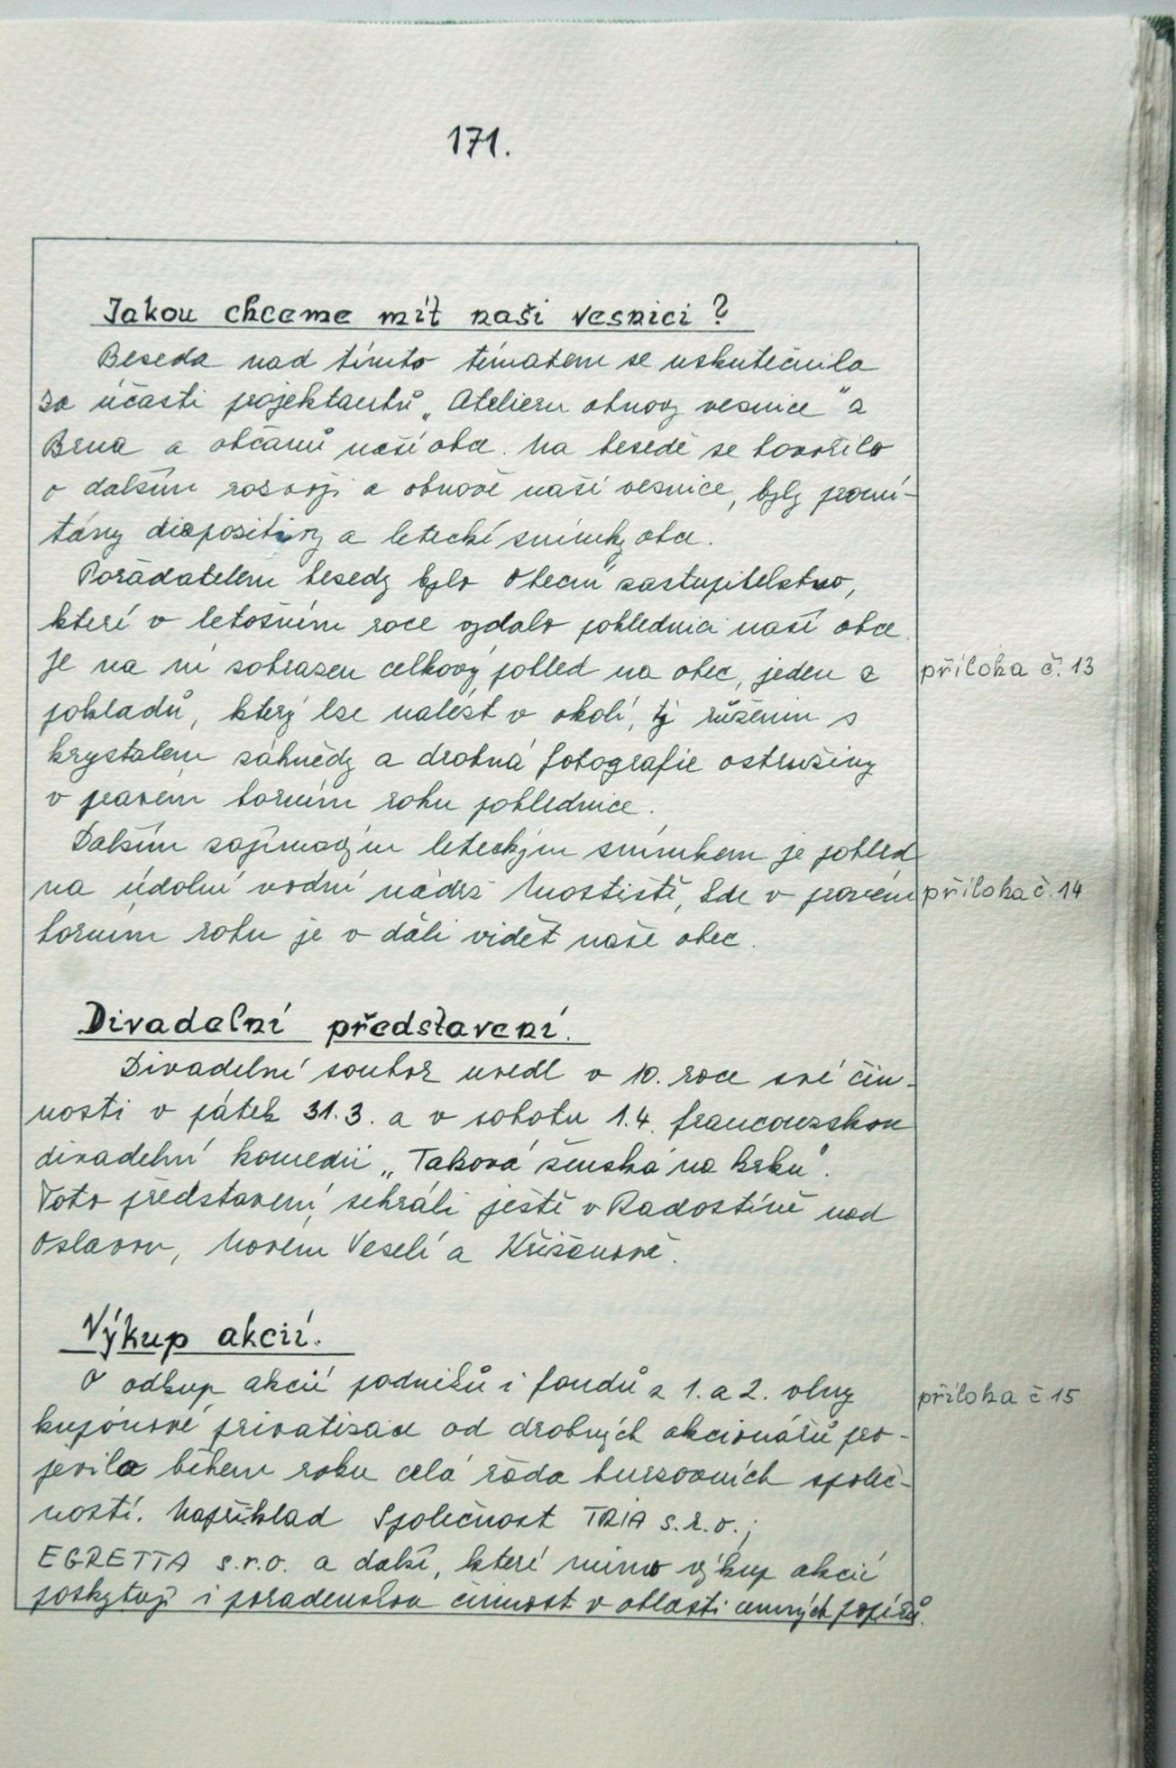 171.
Jakou chceme mít naši vesnici?
Beseda nad tímto tématem se uskutečnila
za účasti projektantů „Atelieru obnovy vesnice" z
Brna a občanů naší obce. Na besedě se hovořilo
o dalším rozvoji a obnově naší vesnice, byly promí-
tány diapozitivy a letecké snímky obce.
Pořadatelem besedy bylo Obecní zastupitelstvo,
které v letošním roce vydalo pohlednici naší obce.
Je na ní zobrazen celkový pohled na obec, jeden z
příloha č. 13
pokladů, který lze nalézt v okolí, tj růženín s
krystalem záhnědy a drobná fotografie ostružiny
v pravém horním rohu pohlednice.
Dalším zajímavým leteckým snímkem je pohled
na údolní vodní nádrž Mostiště, kde v pravém
příloha č. 14
horním rohu je v dáli vidět naše obec.
Divadelní představení.
Divadelní soubor uvedl v 10. roce své čin-
nosti v pátek 31.3. a v sobotu 1.4. francouzskou
divadelní komedii „Taková ženská na krku".
Toto představení sehráli ještě v Radostíně nad
Oslavou, Novém Veselí a Křižanově.
Výkup akcií.
O odkup akcií podniků i fondů z 1. a 2. vlny
příloha č 15
kupónové privatizace od drobných akcionářů pro-
jevila během roku celá řada burzovních společ-
ností. Například Společnost TRIA s.r.o.;
EGRETTA s.r.o. a další, které mimo výkup akcií
poskytují i poradenskou činnost v oblasti cenných papírů.